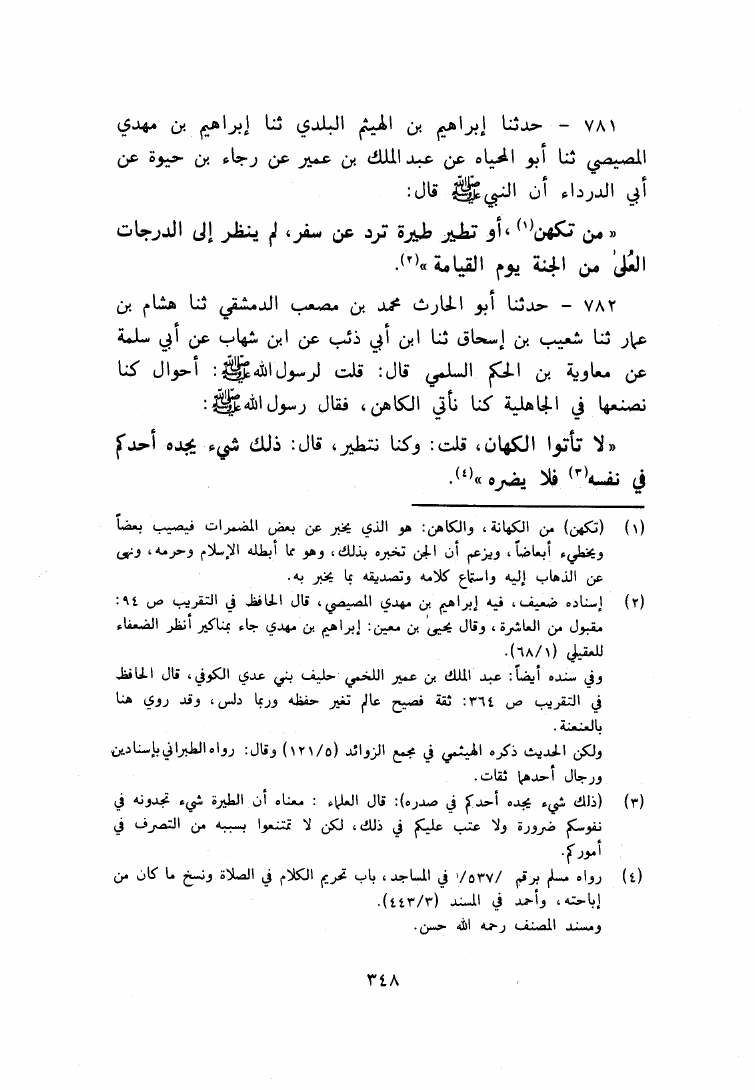 ٧٨١ - حدثنا إبراهيم بن الهيثم البلدي ثنا إبراهيم بن مهدي
المصيصي ثنا أبو المحياه عن عبد الملك بن عمير عن رجاء بن حيوة عن
أبي الدرداء أن النبي ﷺ قال:
« من تكهن(١)، أو تطير طيرة ترد عن سفر، لم ينظر إلى الدرجات
العُلىٰ من الجنة يوم القيامة »(٢).
٧٨٢ - حدثنا أبو الحارث محمد بن مصعب الدمشقي ثنا هشام بن
عمار ثنا شعيب بن إسحاق ثنا ابن أبي ذئب عن ابن شهاب عن أبي سلمة
عن معاوية بن الحكم السلمي قال: قلت لرسول الله ﷺ: أحوال كنا
نصنعها في الجاهلية كنا نأتي الكاهن، فقال رسول الله ﷺ:
« لا تأتوا الكهان، قلت: وكنا نتطير، قال: ذلك شيء يجده أحدكم
في نفسه(٣) فلا يضره »(٤).
(١) (تكهن) من الكهانة، والكاهن: هو الذي يخبر عن بعض المضمرات فيصيب بعضاً
ويخطيء أبعاضاً، ويزعم أن الجن تخبره بذلك، وهو مما أبطله الإسلام وحرمه، ونهى
عن الذهاب إليه واستماع كلامه وتصديقه بما يخبر به.
(٢) إسناده ضعيف، فيه إبراهيم بن مهدي المصيصي، قال الحافظ في التقريب ص ٩٤:
مقبول من العاشرة، وقال يحيىٰ بن معين: إبراهيم بن مهدي جاء بمناكير أنظر الضعفاء
للعقيلي (٦٨/١).
وفي سنده أيضاً: عبد الملك بن عمير اللخمي حليف بني عدي الكوفي، قال الحافظ
في التقريب ص ٣٦٤: ثقة فصيح عالم تغير حفظه وربما دلس، وقد روي هنا
بالعنعنة.
ولكن الحديث ذكره الهيثمي في مجمع الزوائد (١٢١/٥) وقال: رواه الطبراني بإسنادين
ورجال أحدهما ثقات.
(٣) (ذلك شيء يجده أحدكم في صدره): قال العلماء : معناه أن الطيرة شيء تجدونه في
نفوسكم ضرورة ولا عتب عليكم في ذلك، لكن لا تمتنعوا بسببه من التصرف في
أموركم.
(٤) رواه مسلم برقم /٥٣٧/ في المساجد، باب تحريم الكلام في الصلاة ونسخ ما كان من
إباحته، وأحمد في المسند (٤٤٣/٣).
ومسند المصنف رحمه الله حسن.
٣٤٨